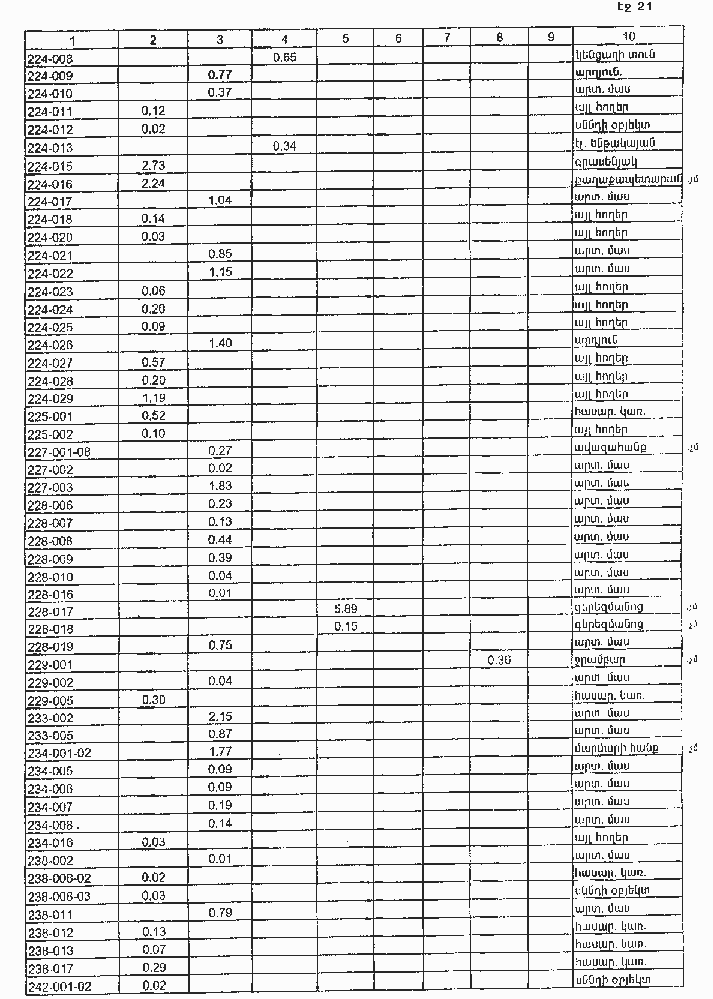 էջ 21
1 2 3 4 5 6 7 8 9 10
224-008 0.65 կենցաղի տուն
224-009 0.77 արդյուն.
224-010 0.37 արտ. մաս
224-011 0.12 այլ հողեր
224-012 0.02 սննդի օբյեկտ
224-013 0.34 էլ. ենթակայան
224-015 2.73 գրասենյակ
224-016 2.24 քաղաքապետարան չմ
224-017 1.04 արտ. մաս
224-018 0.14 այլ հողեր
224-020 0.03 այլ հողեր
224-021 0.85 արտ. մաս
224-022 1.15 արտ. մաս
224-023 0.06 այլ հողեր
224-024 0.20 այլ հողեր
224-025 0.09 այլ հողեր
224-026 1.40 արդյուն
224-027 0.57 այլ հողեր
224-028 0.20 այլ հողեր
224-029 1.19 այլ հողեր
225-001 0.52 հասար. կառ.
225-002 0.10 այլ հողեր
227-001-08 0.27 ավազահանք չմ
227-002 0.02 արտ. մաս
227-003 1.83 արտ. մաս
228-006 0.23 արտ. մաս
228-007 0.13 արտ. մաս
228-008 0.44 արտ. մաս
228-009 0.39 արտ. մաս
228-010 0.04 արտ. մաս
228-016 0.01 արտ. մաս
228-017 5.89 գերեզմանոց չմ
228-018 0.15 գերեզմանոց չմ
228-019 0.75 արտ. մաս
229-001 0.36 ջրամբար չմ
229-002 0.04 արտ մաս
229-005 0.30 հասար. կառ.
233-002 2.15 արտ մաս
233-005 0.87 արտ. մաս
234-001-02 1.77 մարմարի հանք չմ
234-005 0.09 արտ. մաս
234-006 0.09 արտ. մաս
234-007 0.19 արտ. մաս
234-008 . 0.14 արտ. մաս
234-016 0.03 այլ հողեր
238-002 0.01 արտ. մաս
238-006-02 0.02 հասար. կառ.
238-006-03 0.03 սննդի օբյեկտ
238-011 0.79 արտ. մաս
238-012 0.13 հասար. կառ.
238-013 0.07 հասար. կառ.
238-017 0.29 հասար. կառ.
242-001-02 0.02 սննդի օբյեկտ